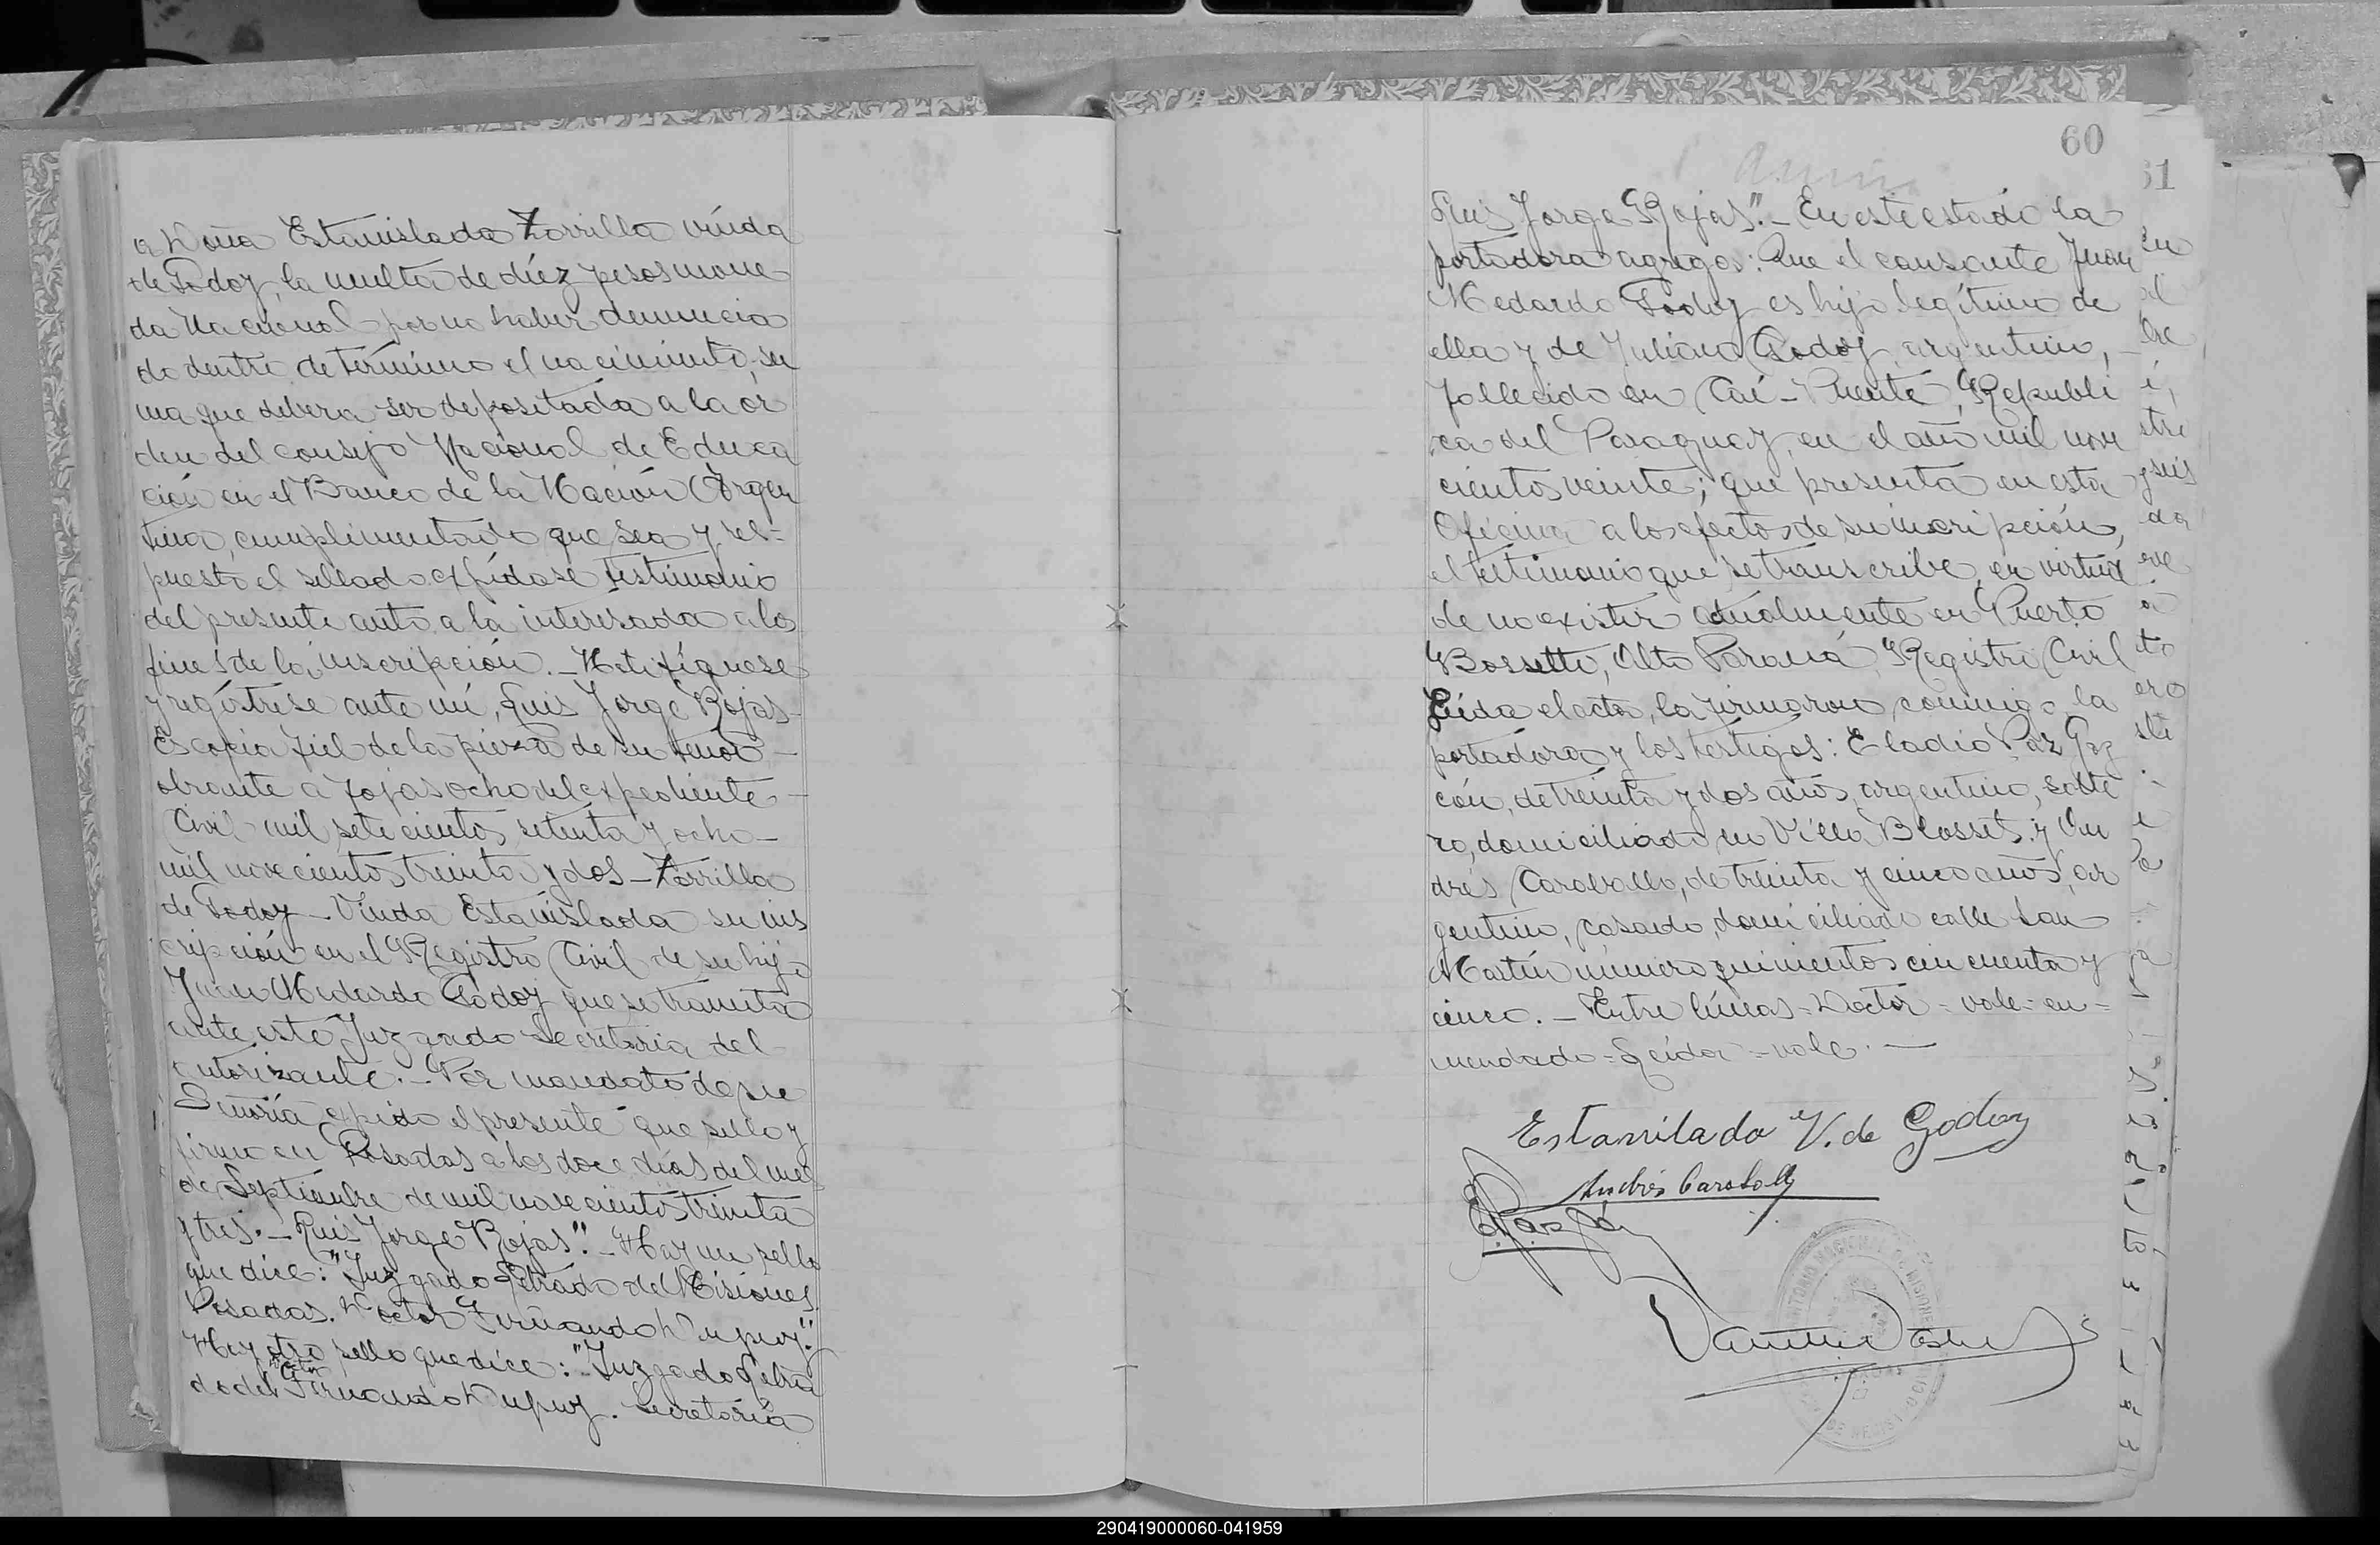 a Doña Estanislada Zorrilla viuda
de Godoy, la multa de diéz pesos mone
da Nacional por no haber denuncia
do dentro de término el nacimiento, su
ma que debera ser depositada a la or
den del consejo Nacional de Educa
ción en el Banco de la Nación Argen
tina, cumplimentado que sea y res-
puesto el sellado expídase testimonio
del presente auto a la interesada a los
fines de la inscripción.- Notifíquese
y regístrese ante mí, Luis Jorge Rojas-
Es copia fiel de la pieza de su tenor -
obrante a fojas ocho del expediente -
Civil mil setecientos setenta y ocho -
mil novecientos treinta y dos - Zorrilla
de Godoy - Viuda Estanislada su ins
cripción en el Registro Civil de su hijo
Juan Medardo Godoy que se tramita
ante este Juzgado Secretaria del
autorizante.- Por mandato de su
Señoría expido el presente que sello y
firmo en Posadas a los doce días del mes
de Septiembre de mil novecientos treinta
y tres.- Luis Jorge Rojas".- Hay un sello
que dice: "Juzgado Letrado del Misiones
Posadas. Doctor Fernando Dupuy".
Hay otro sello que dice: "Juzgado Letra
do del Doctor Fernando Dupuy. Secretaría
60
Luis Jorge Rojas".- En este estado la
portadora agrega: Que el causante Juan
Medardo Godoy es hijo legítimo de
ella y de Juliana Godoy, argentino,
fallecido en Caí-Puente, Republi
ca del Paraguay, en el año mil nove
cientos veinte; que presenta en esta
Oficina a los efectos de su inscripción,
el testimonio que se transcribe, en virtud
de no existir actualmente en Puerto
Bossetti, Alto Paraná, Registro Civil
Leída el acta, la firmaron conmigo la
portadora y los testigos: Eladio Paz Gar
cón, de treinta y dos años, argentino, solte
ro, domiciliado en Villa Blosset; y An
drés Caraballo, de treinta y cinco años, ar
gentino, casado, domiciliado calle San
Martín número quinientos cincuenta y
cinco.- Entre líneas = Doctor = vale = en =
mendado = Leída = vale.-
Estanilada V. de Godoy
Andrés Caraballo
61
290419000060-041959